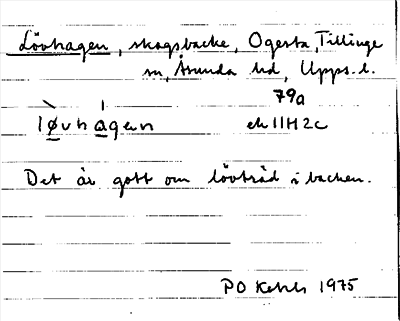 Lövhagen, skogsbacke, Ogesta, Tillinge
sn, Åsunda hd, Upps. l.
79a
l ø v h a g e n ek 11H2c
Det är gott om lövträd i backen.
PO 1975